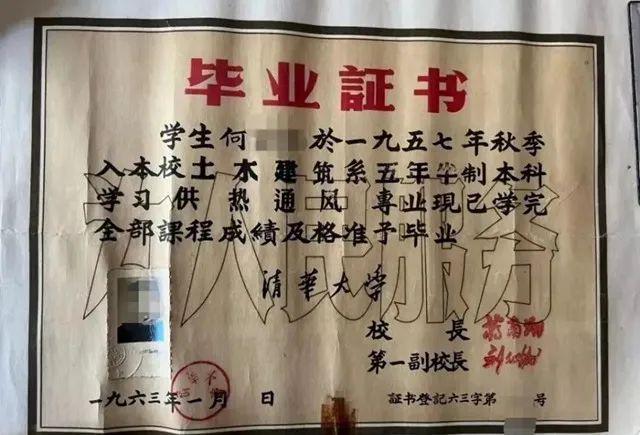 毕业証书
学生何 於一九五七年秋季
入本校土木建筑系五年半制本科
学习供热通风專业現已学完
全部課程成績及格准予毕业
为人民服务
清華大学
校長 蒋南翔
第一副校長
一九六三年一月 日
証书登記六三字第 号